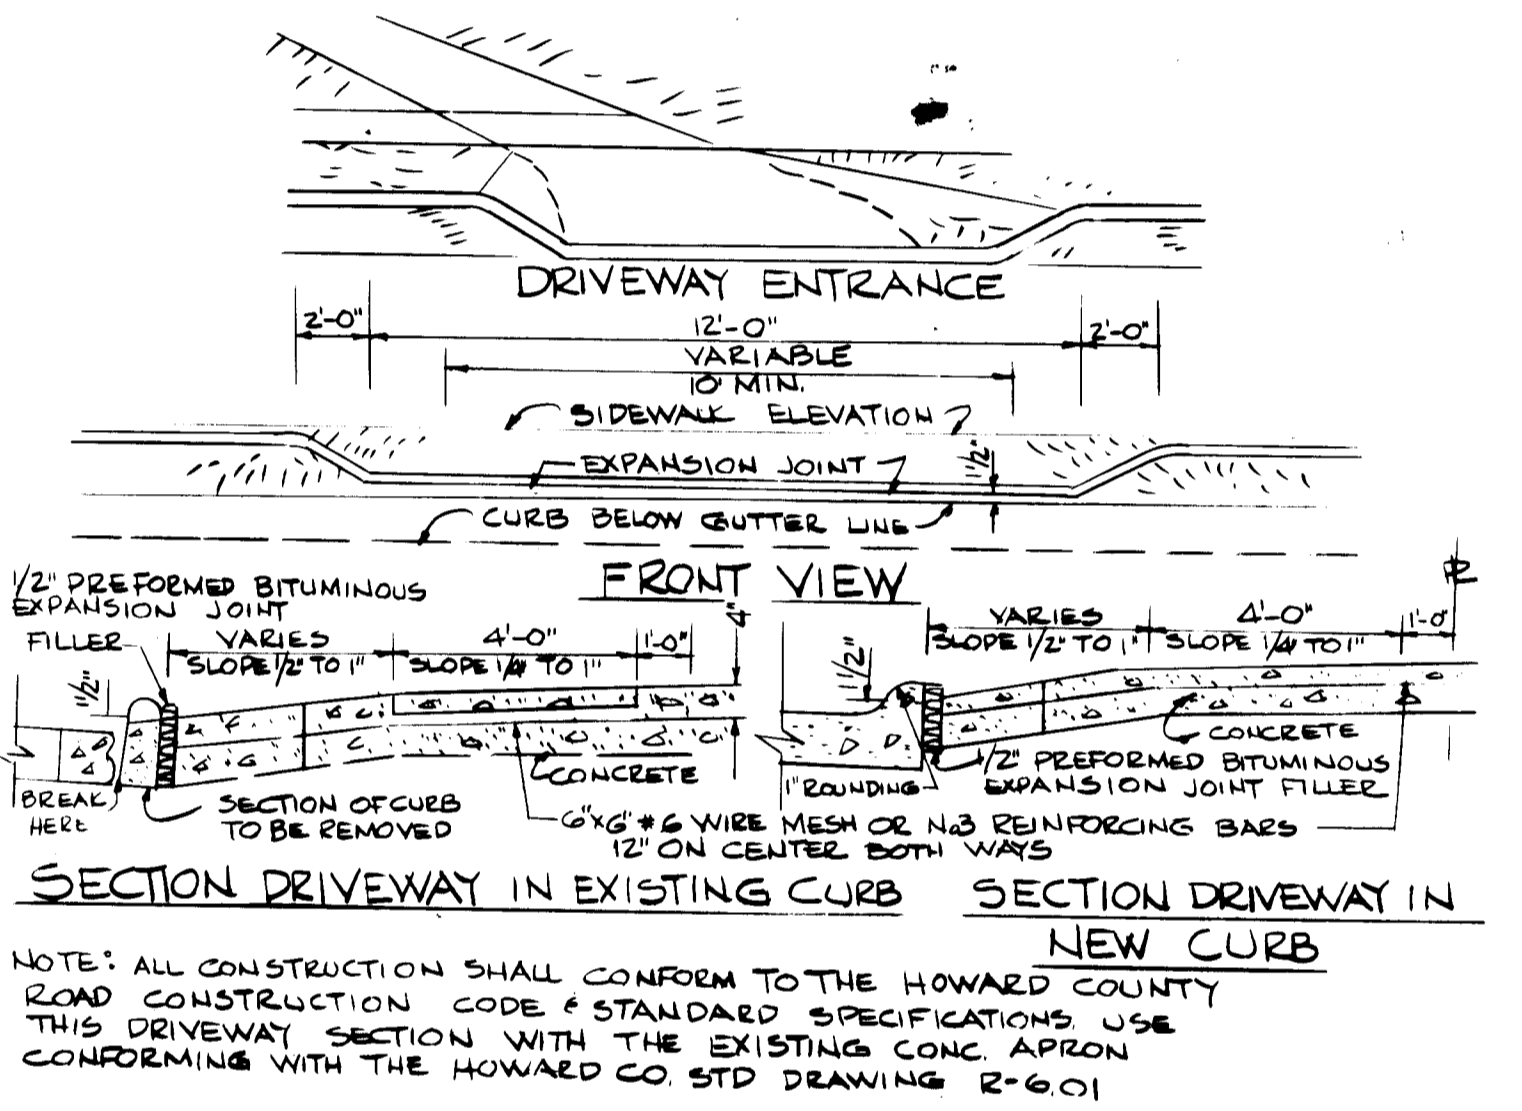 DRIVEWAY ENTRANCE
2'-0"
12'-0"
2'-0"
VARIABLE
10' MIN.
SIDEWALK ELEVATION
EXPANSION JOINT
1 1/2"
CURB BELOW GUTTER LINE
FRONT VIEW
1/2" PREFORMED BITUMINOUS
EXPANSION JOINT
FILLER
VARIES
SLOPE 1/2" TO 1"
4'-0"
SLOPE 1/4" TO 1"
1'-0"
4"
1 1/2"
BREAK
HERE
SECTION OF CURB
TO BE REMOVED
CONCRETE
6"X6" #6 WIRE MESH OR No3 REINFORCING BARS
12" ON CENTER BOTH WAYS
SECTION DRIVEWAY IN EXISTING CURB
VARIES
SLOPE 1/2" TO 1"
4'-0"
SLOPE 1/4" TO 1"
1'-0"
1 1/2"
CONCRETE
1/2" PREFORMED BITUMINOUS
EXPANSION JOINT FILLER
1" ROUNDING
SECTION DRIVEWAY IN
NEW CURB
NOTE: ALL CONSTRUCTION SHALL CONFORM TO THE HOWARD COUNTY
ROAD CONSTRUCTION CODE & STANDARD SPECIFICATIONS. USE
THIS DRIVEWAY SECTION WITH THE EXISTING CONC. APRON
CONFORMING WITH THE HOWARD CO. STD DRAWING R-6.01